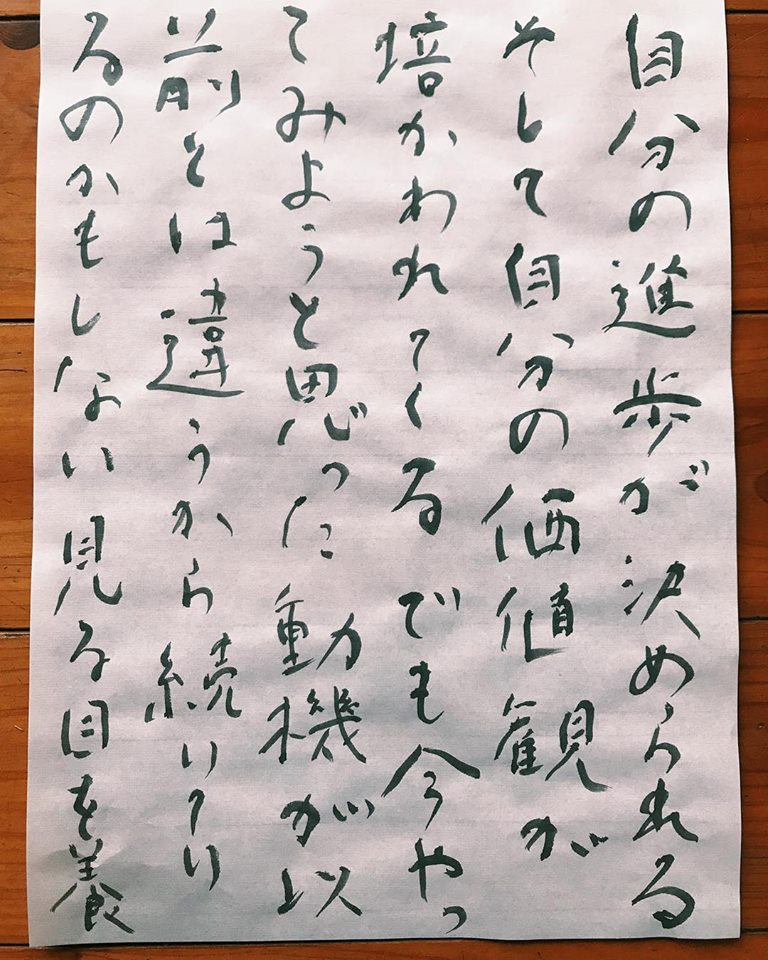 自分の進歩が決められる
そして自分の価値観が
培かわれてくるでも今やっ
てみようと思った動機が以
前とは違うから続いてい
るのかもしれない見る目を養